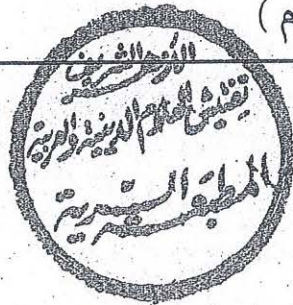 م)
الأزهر الشريف
تفتيش العلوم الدينية والعربية
بالمنطقة